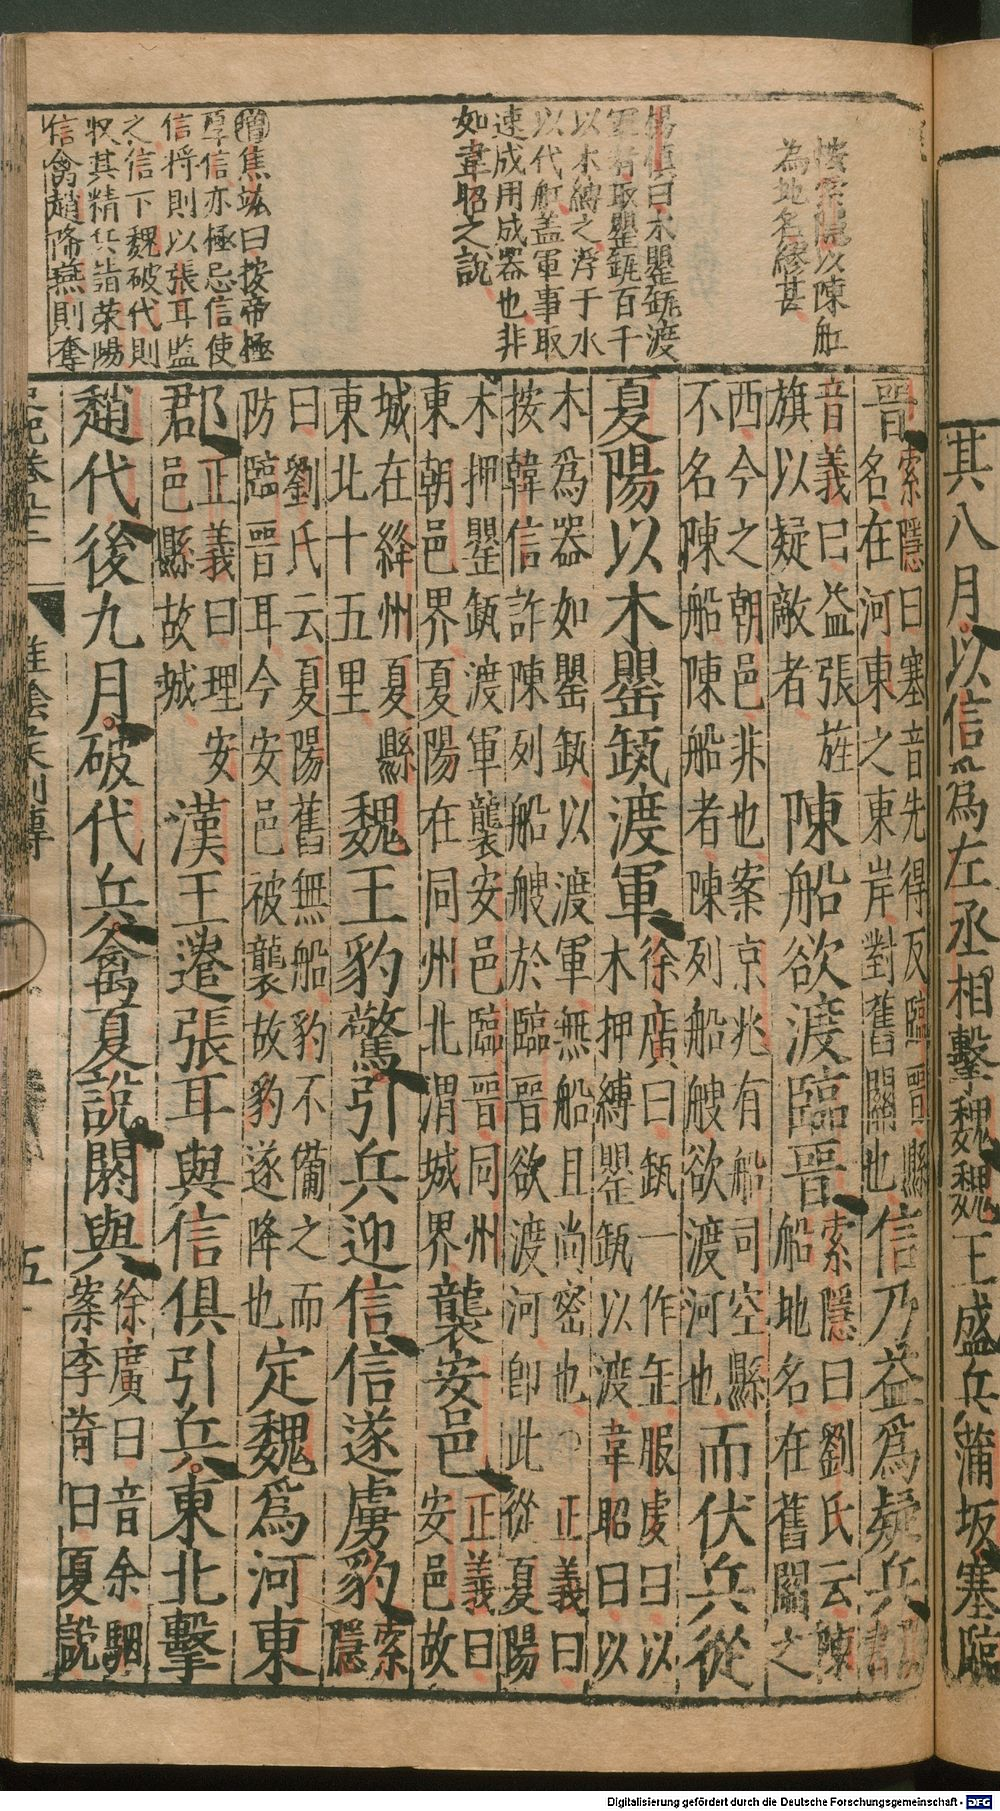 其八月以信為左丞相擊魏魏王盛兵蒲坂塞臨
按索隱以陳舩
為地名繆甚
楊慎曰木罌缻渡
軍者取罌缻百千
以木縛之浮于水
以代舩蓋軍事取
速成用成器也非
如韋昭之說
增焦竑曰按帝極
厚信亦極忌信使
信将則以張耳監
之信下魏破代則
収其精兵詣荥陽
信禽趙降燕則奪
晉
索隱曰塞音先得反臨晉縣
名在河東之東岸對舊關也
信乃益為疑兵
漢書
音義曰益張旌
旗以疑敵者
陳船欲渡臨晉
索隱曰劉氏云陳
船地名在舊關之
西今之朝邑非也案京兆有船司空縣
不名陳船陳船者陳列船艘欲渡河也
而伏兵從
夏陽以木罌缻渡軍
徐廣曰缻一作缶服虔曰以
木押縛罌缻以渡韋昭曰以
木為器如罌缻以渡軍無船且尚密也○正義曰
按韓信詐陳列船艘於臨晉欲渡河即此從夏陽
木押罌缻渡軍襲安邑臨晉同州
東朝邑界夏陽在同州北渭城界
襲安邑
正義曰
安邑故
城在絳州夏縣
東北十五里
魏王豹驚引兵迎信信遂虜豹
索
隱
曰劉氏云夏陽舊無船豹不備之而
防臨晉耳今安邑被襲故豹遂降也
定魏為河東
郡
正義曰理安
邑縣故城
漢王遣張耳與信俱引兵東北擊
趙代後九月破代兵禽夏說閼與
徐廣曰音余駰
案李奇曰夏說
淮陰侯列傳
五
Digitalisierung gefördert durch die Deutsche Forschungsgemeinschaft - DFG